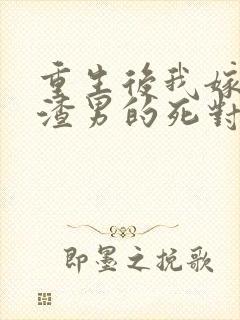 重生後我嫁
渣男的死對
即墨之挽歌